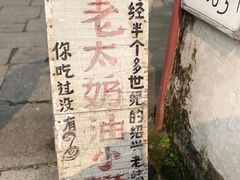 经半个多世纪的绍兴老
老太奶油小
你吃过没有